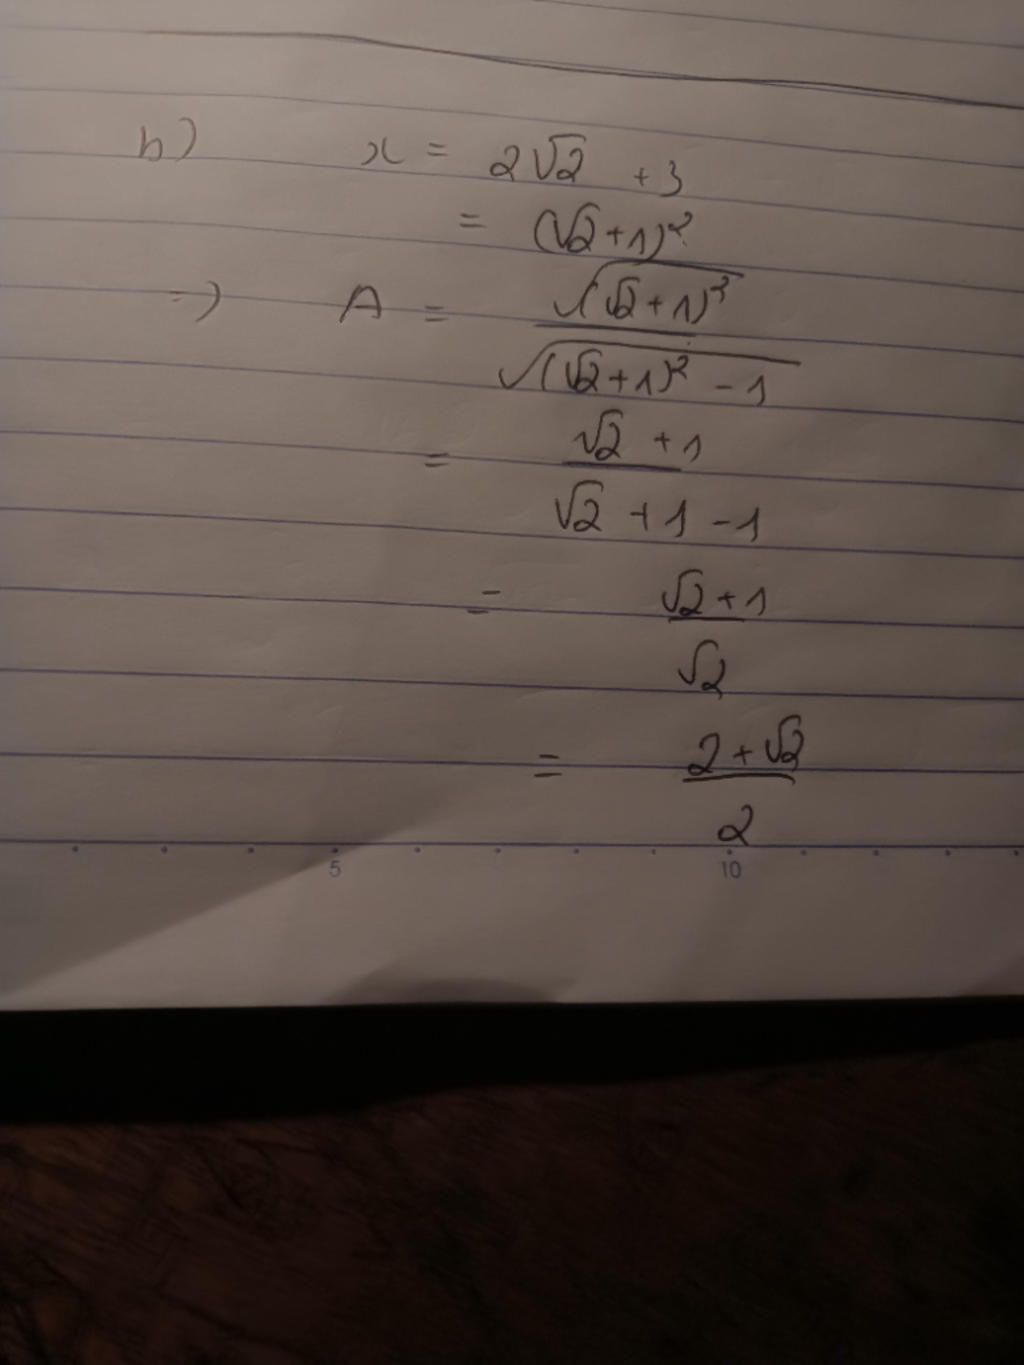 b) x = 2√2 + 3
= (√2+1)²
=) A = √(√2+1)² / √(√2+1)² - 1
= √2 + 1 / √2 + 1 - 1
= √2+1 / √2
= 2+√2 / 2
5 10